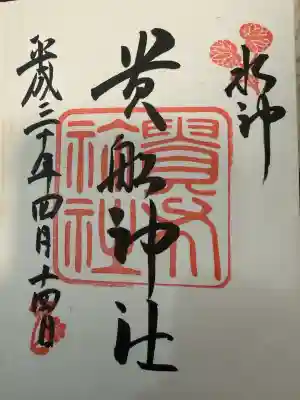 水神
貴船神社
平成三十年四月十四日
貴船
神社